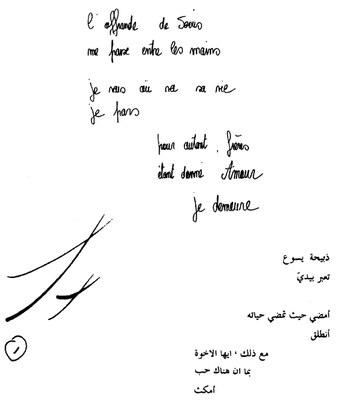 l'offrande de Jésus
me passe entre les mains
je vais où va sa vie
je pars
pour autant, frères
étant donné Amour
je demeure
ذبيحة يسوع
تعبر بيديّ
أمضي حيث تمضي حياته
أنطلق
مع ذلك ، ايها الاخوة
بما ان هناك حب
أمكث